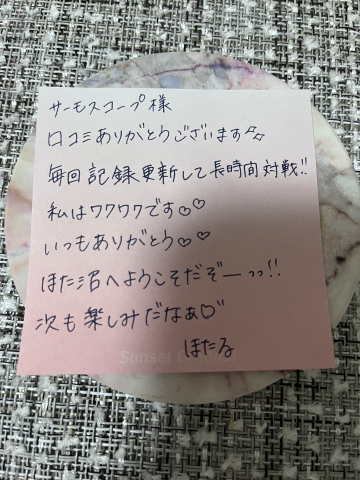 サーモスコープ様
口コミありがとうございます✨
毎回記録更新して長時間対戦!!
私はワクワクです♡♡
いつもありがとう♡♡
ほた沼へようこそだぞーっっ!!
次も楽しみだなぁ♡"
Sunset
ほたる